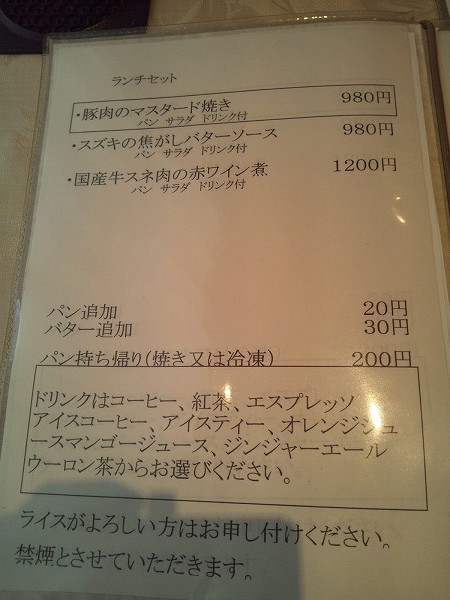 ランチセット
・豚肉のマスタード焼き 980円
パン サラダ ドリンク付
・スズキの焦がしバターソース 980円
パン サラダ ドリンク付
・国産牛スネ肉の赤ワイン煮 1200円
パン サラダ ドリンク付
パン追加 20円
バター追加 30円
パン持ち帰り(焼き又は冷凍) 200円
ドリンクはコーヒー、紅茶、エスプレッソ
アイスコーヒー、アイスティー、オレンジジュ
ースマンゴージュース、ジンジャーエール
ウーロン茶からお選びください。
ライスがよろしい方はお申し付けください。
禁煙とさせていただきます。